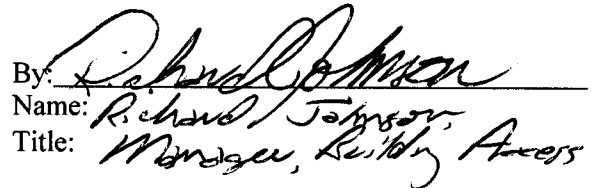 By: Richard Johnson
Name: Richard Johnson,
Title: Manager, Building Access